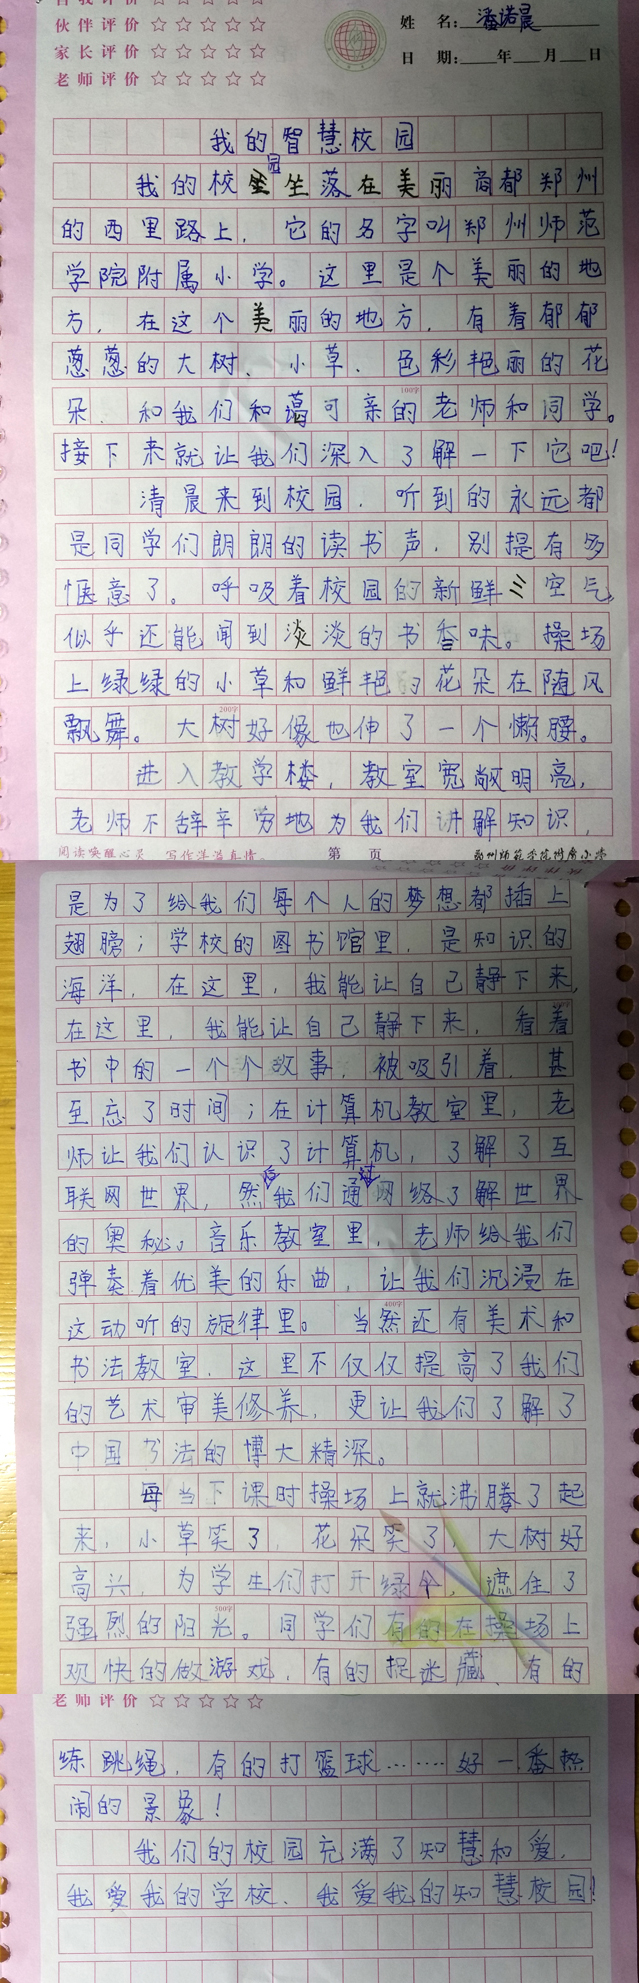 伙伴评价 ☆☆☆☆☆
家长评价 ☆☆☆☆☆
老师评价 ☆☆☆☆☆
姓 名: 潘诺晨
日 期: 年 月 日
我的智慧校园
我的校园坐落在美丽商都郑州
的西里路上，它的名字叫郑州师范
学院附属小学。这里是个美丽的地
方，在这个美丽的地方，有着郁郁
葱葱的大树、小草、色彩艳丽的花
朵、和我们和蔼可亲的老师和同学。
100字
接下来就让我们深入了解一下它吧！
清晨来到校园，听到的永远都
是同学们朗朗的读书声，别提有多
惬意了。呼吸着校园的新鲜空气，
似乎还能闻到淡淡的书香味。操场
上绿绿的小草和鲜艳的花朵在随风
飘舞。大树好像也伸了一个懒腰。
200字
进入教学楼，教室宽敞明亮，
老师不辞辛劳地为我们讲解知识，
阅读唤醒心灵 写作洋溢真情。 第 页 郑州师范学院附属小学
是为了给我们每个人的梦想都插上
翅膀；学校的图书馆里，是知识的
海洋，在这里，我能让自己静下来，
在这里，我能让自己静下来，看着
书中的一个个故事，被吸引着，甚
至忘了时间；在计算机教室里，老
师让我们认识了计算机，了解了互
联网世界，然后我们通过网络了解世界
的奥秘。音乐教室里，老师给我们
弹奏着优美的乐曲，让我们沉浸在
这动听的旋律里。当然还有美术和
400字
书法教室，这里不仅仅提高了我们
的艺术审美修养，更让我们了解了
中国书法的博大精深。
每当下课时操场上就沸腾了起
来，小草笑了，花朵笑了，大树好
高兴，为学生们打开绿伞，遮住了
强烈的阳光。同学们有的在操场上
500字
欢快的做游戏，有的捉迷藏，有的
老师评价 ☆☆☆☆☆
练跳绳，有的打篮球……好一番热
闹的景象！
我们的校园充满了知慧和爱，
我爱我的学校、我爱我的知慧校园！